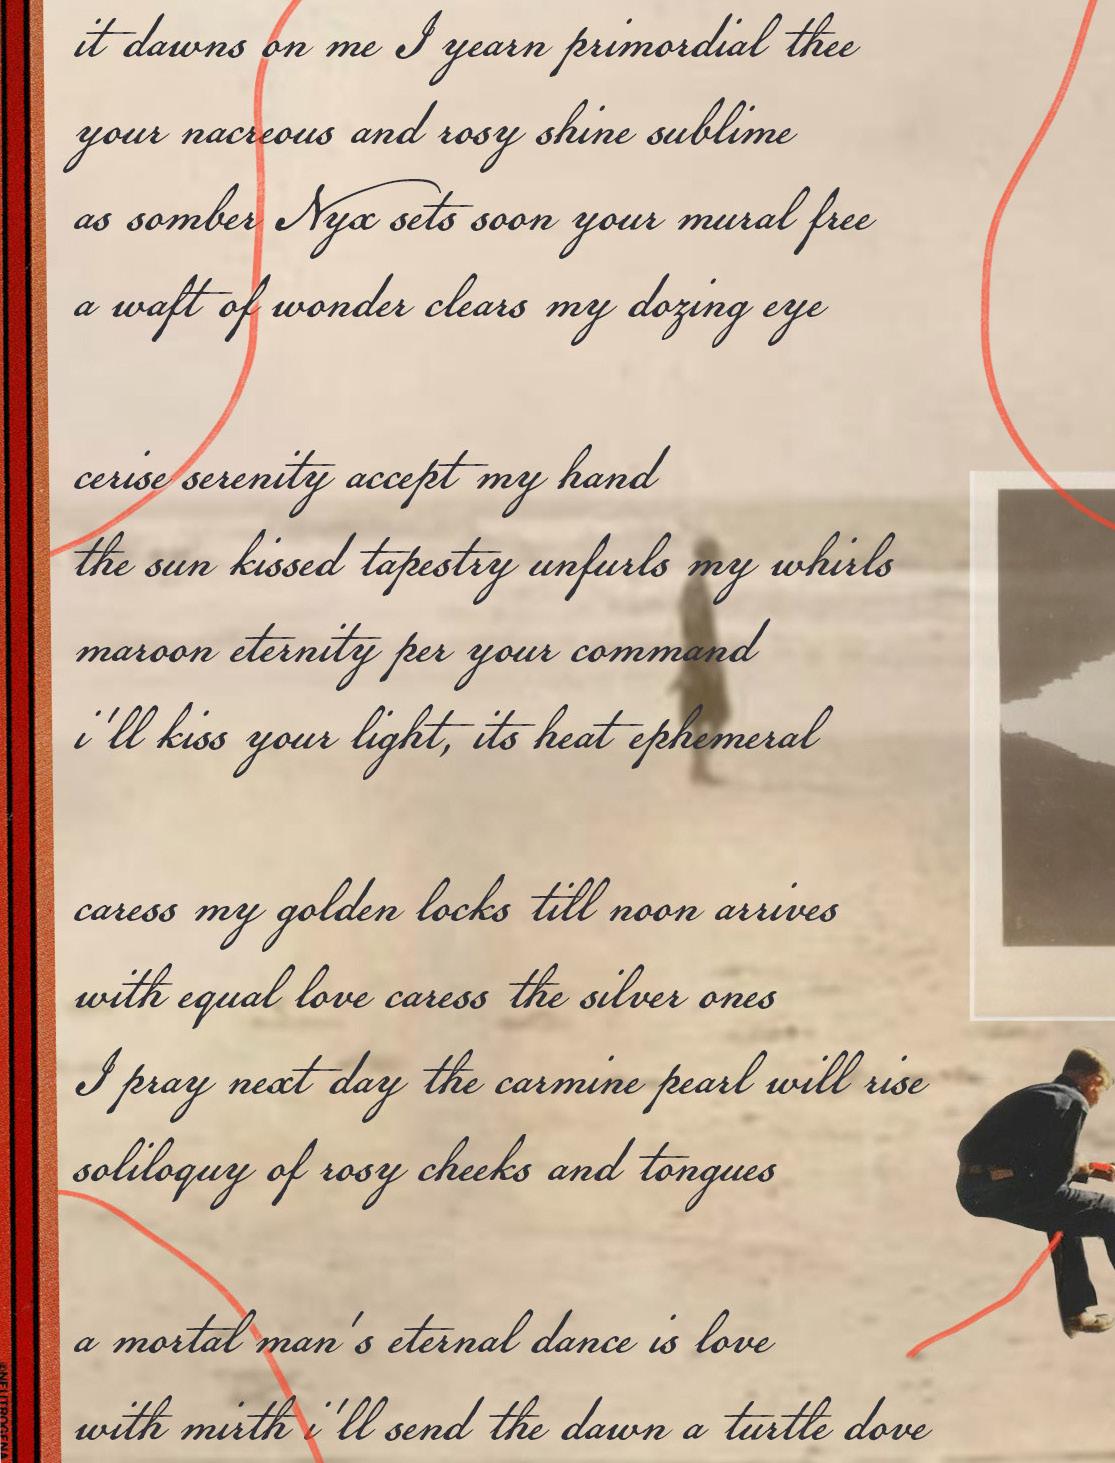 it dawns on me I yearn primordial thee
your nacreous and rosy shine sublime
as somber Nyx sets soon your mural free
a waft of wonder clears my dozing eye
cerise serenity accept my hand
the sun kissed tapestry unfurls my whirls
maroon eternity per your command
i'll kiss your light, its heat ephemeral
caress my golden locks till noon arrives
with equal love caress the silver ones
I pray next day the carmine pearl will rise
soliloquy of rosy cheeks and tongues
a mortal man's eternal dance is love
with mirth i'll send the dawn a turtle dove